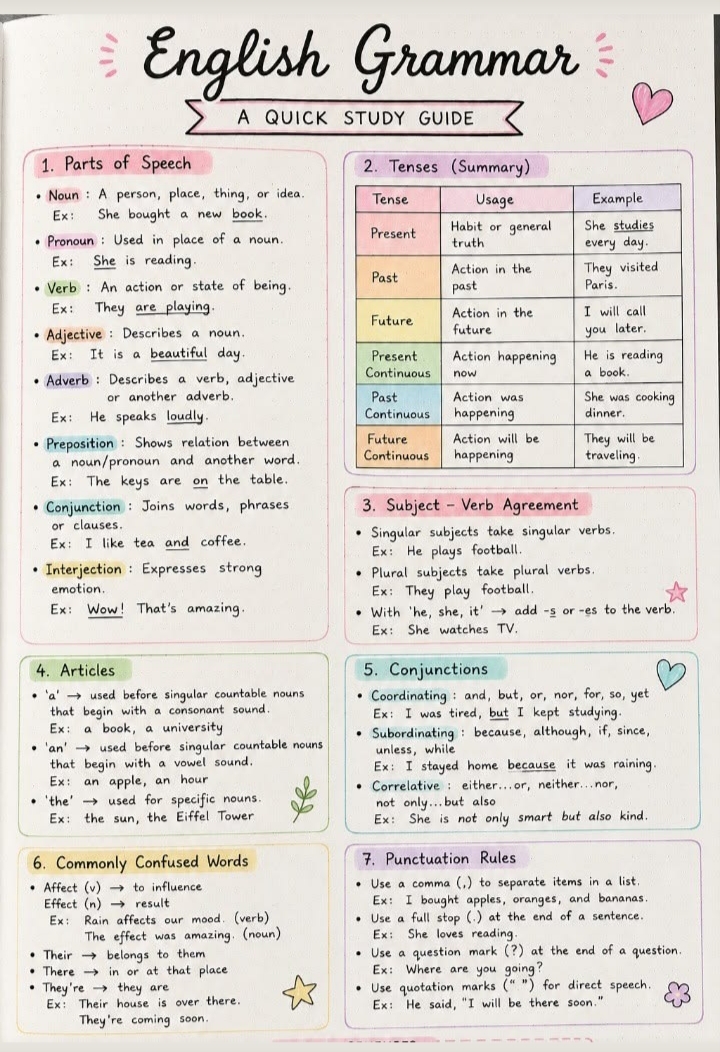 English Grammar
A QUICK STUDY GUIDE
1. Parts of Speech
• Noun : A person, place, thing, or idea.
Ex: She bought a new book.
• Pronoun : Used in place of a noun.
Ex: She is reading.
• Verb : An action or state of being.
Ex: They are playing.
• Adjective : Describes a noun.
Ex: It is a beautiful day.
• Adverb : Describes a verb, adjective
or another adverb.
Ex: He speaks loudly.
• Preposition : Shows relation between
a noun/pronoun and another word.
Ex: The keys are on the table.
• Conjunction : Joins words, phrases
or clauses.
Ex: I like tea and coffee.
• Interjection : Expresses strong
emotion.
Ex: Wow! That's amazing.
2. Tenses (Summary)
Tense Usage Example
Present Habit or general truth She studies every day.
Past Action in the past They visited Paris.
Future Action in the future I will call you later.
Present Continuous Action happening now He is reading a book.
Past Continuous Action was happening She was cooking dinner.
Future Continuous Action will be happening They will be traveling.
3. Subject – Verb Agreement
• Singular subjects take singular verbs.
Ex: He plays football.
• Plural subjects take plural verbs.
Ex: They play football.
• With 'he, she, it' → add -s or -es to the verb.
Ex: She watches TV.
4. Articles
• 'a' → used before singular countable nouns
that begin with a consonant sound.
Ex: a book, a university
• 'an' → used before singular countable nouns
that begin with a vowel sound.
Ex: an apple, an hour
• 'the' → used for specific nouns.
Ex: the sun, the Eiffel Tower
5. Conjunctions
• Coordinating : and, but, or, nor, for, so, yet
Ex: I was tired, but I kept studying.
• Subordinating : because, although, if, since,
unless, while
Ex: I stayed home because it was raining.
• Correlative : either...or, neither...nor,
not only...but also
Ex: She is not only smart but also kind.
6. Commonly Confused Words
• Affect (v) → to influence
Effect (n) → result
Ex: Rain affects our mood. (verb)
The effect was amazing. (noun)
• Their → belongs to them
• There → in or at that place
• They're → they are
Ex: Their house is over there.
They're coming soon.
7. Punctuation Rules
• Use a comma (,) to separate items in a list.
Ex: I bought apples, oranges, and bananas.
• Use a full stop (.) at the end of a sentence.
Ex: She loves reading.
• Use a question mark (?) at the end of a question.
Ex: Where are you going?
• Use quotation marks (“ ”) for direct speech.
Ex: He said, "I will be there soon."